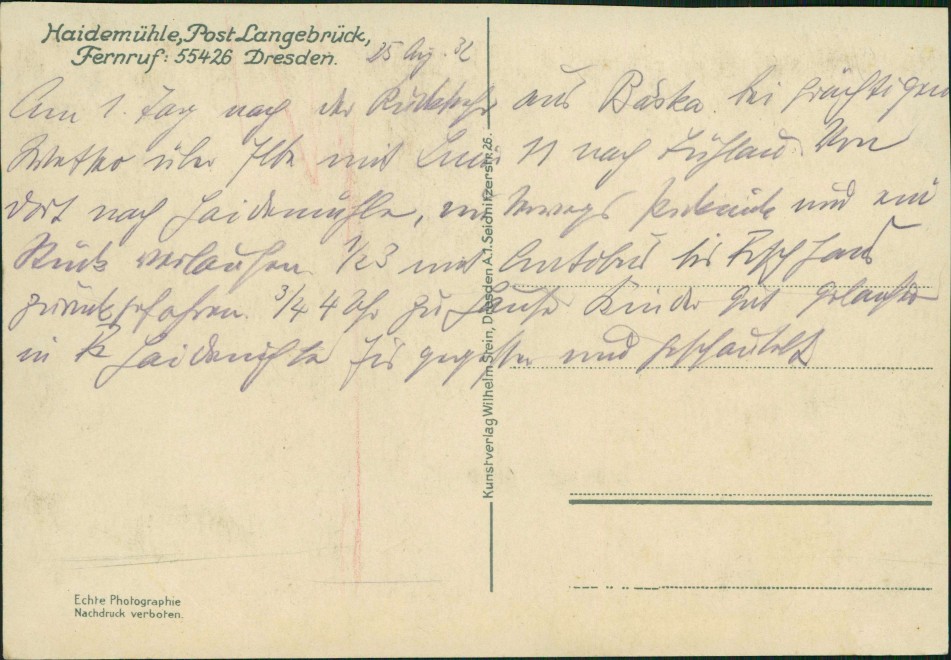 Haidemühle, Post Langebrück,
Fernruf: 55426 Dresden.
25 Aug. 32
Am 1. Tag nach der Rückkehr aus Baska bei prächtigen
Wetter über Elbe mit Linie 11 nach Bühlau. Von
dort nach Haidemühle, unterwegs und ein
Stück verlaufen. 1/2 3 mit Autobus bis Fischhaus
zurückgefahren. 3/4 4 Uhr zu Hause Kinder gut gelaufen
in Haidemühle Eis gegessen und geschaukelt
Kunstverlag Wilhelm Stein, Dresden A.1. Seidnitzerstr. 26.
Echte Photographie
Nachdruck verboten.